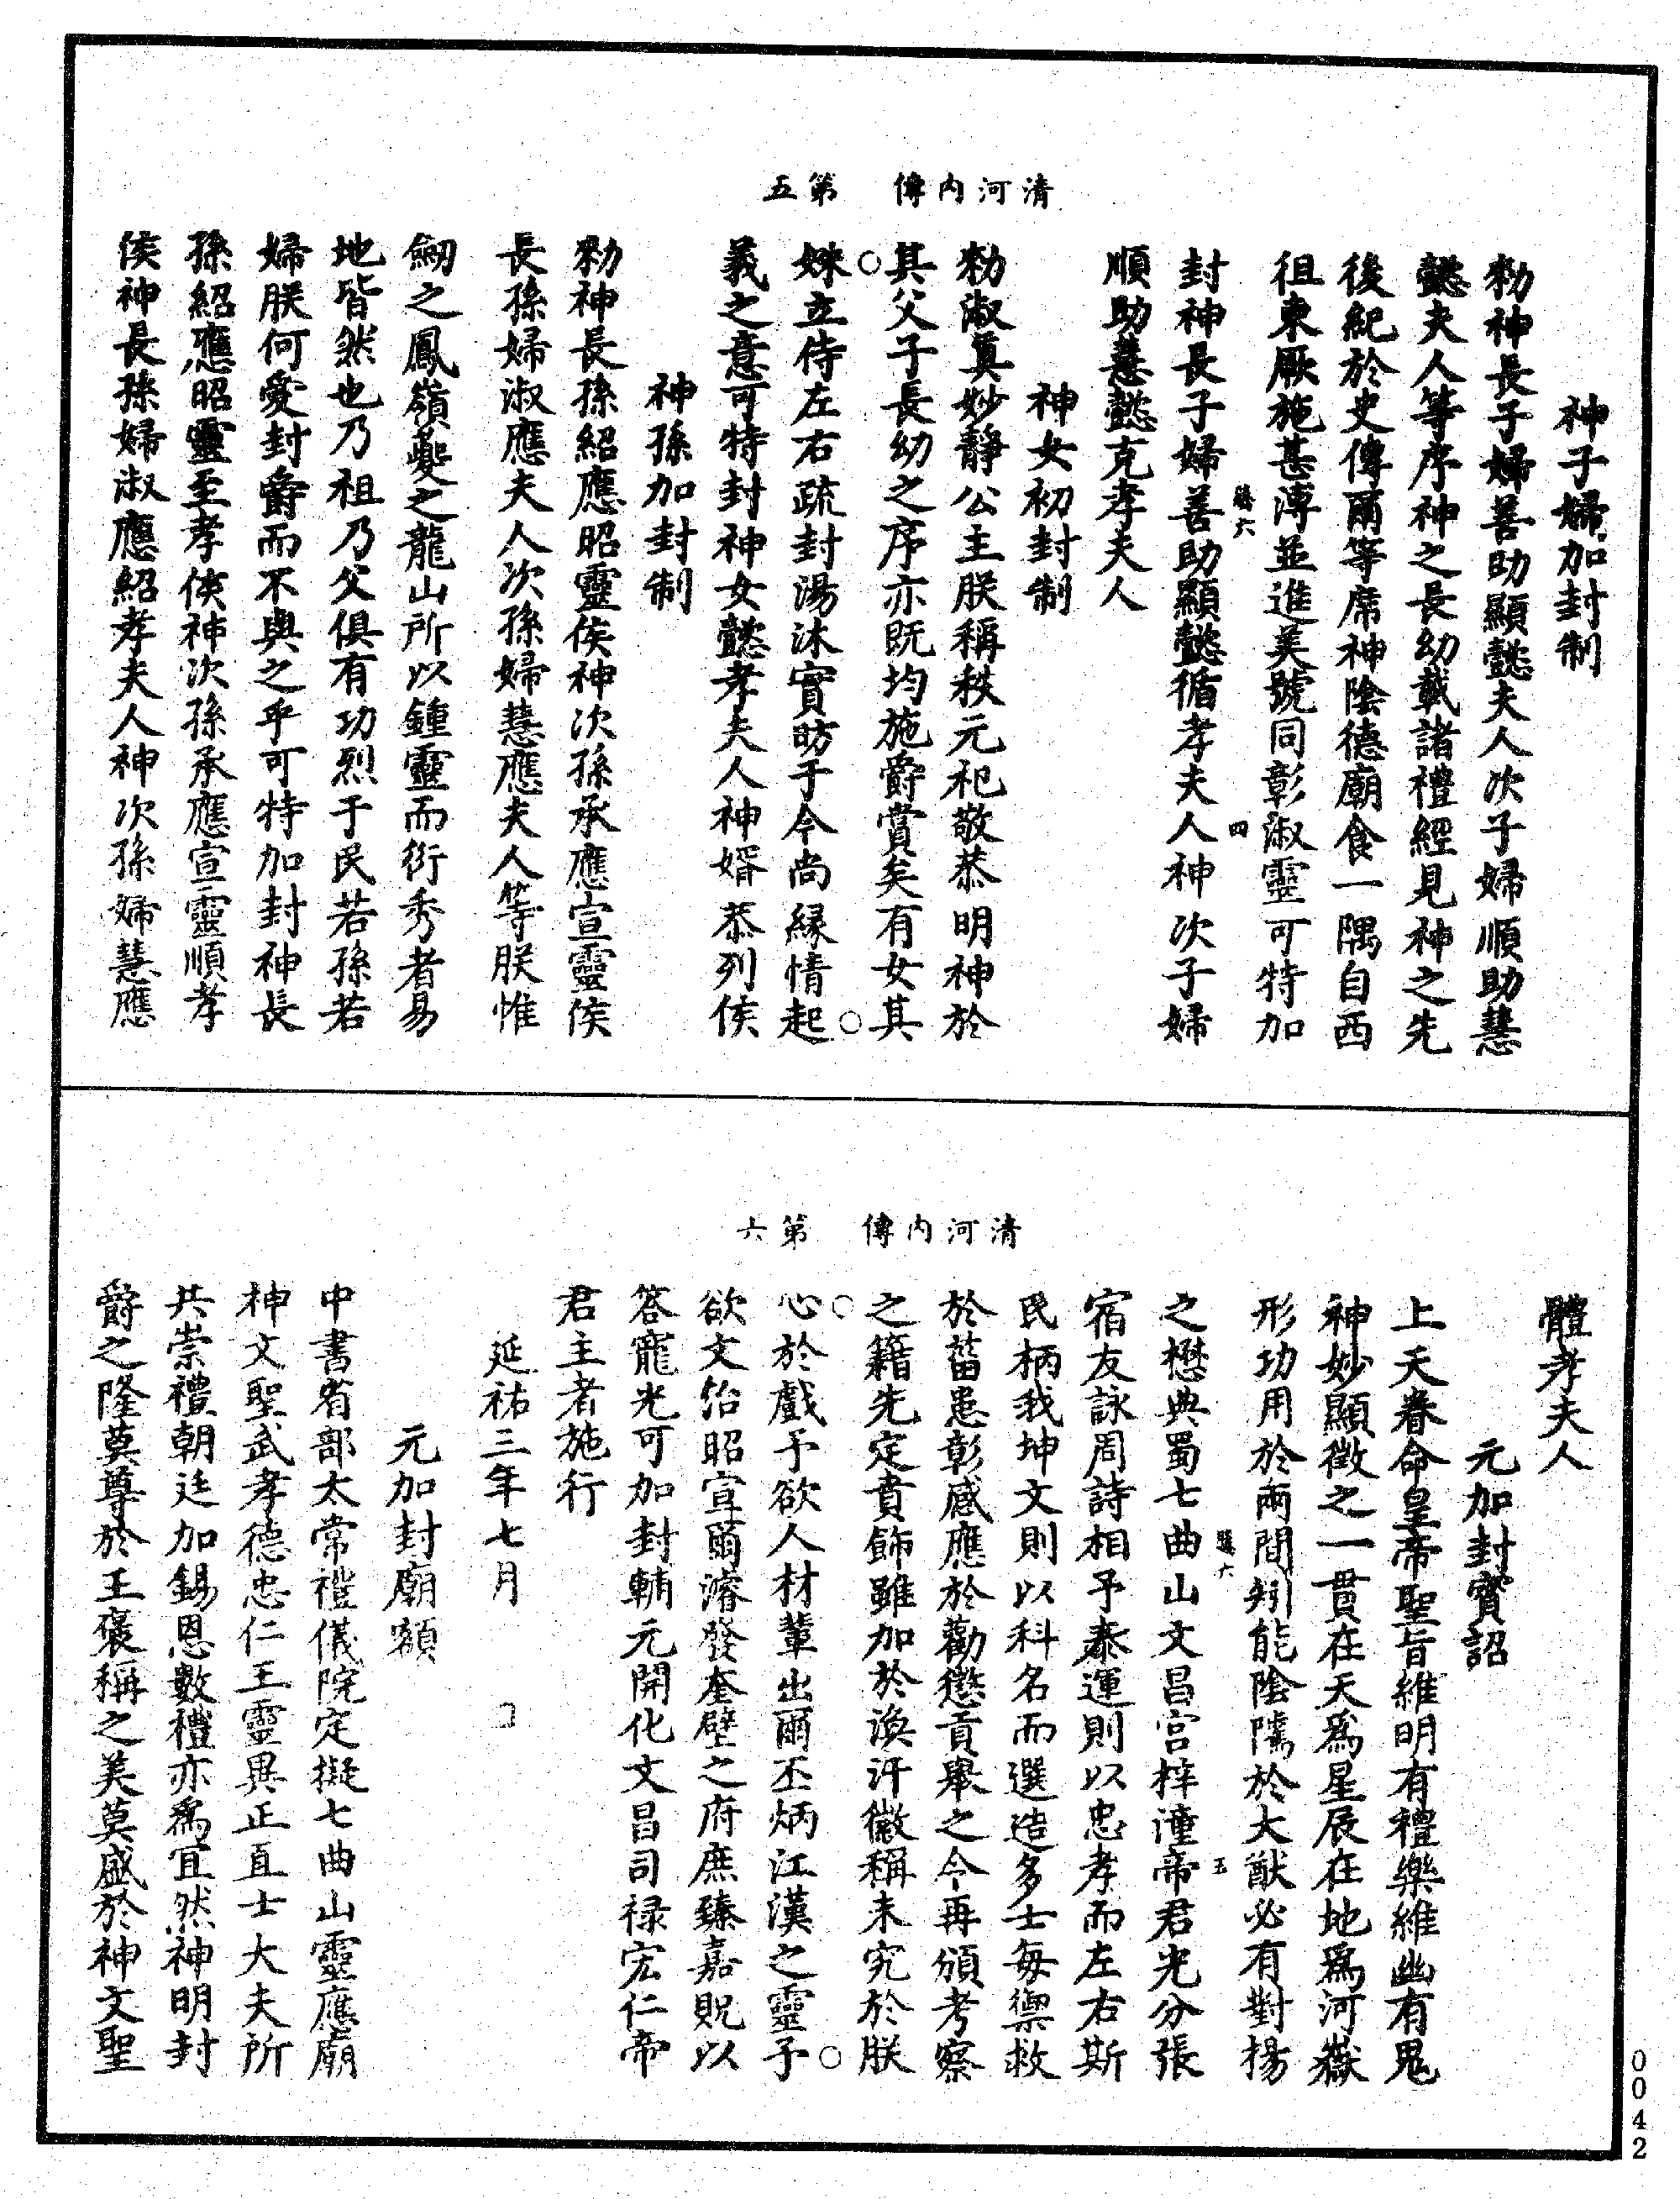 清河內傳　第五
神子婦加封制
勑神長子婦善助顯懿夫人次子婦順助慧
懿夫人等序神之長幼載諸禮經見神之先
後紀於史傳爾等席神陰德廟食一隅自西
徂東厥施甚溥並進美號同彰淑靈可特加
封神長子婦善助顯懿循孝夫人神次子婦
順助慧懿克孝夫人
神女初封制
勑淑眞妙靜公主朕稱秩元祀敬恭明神於
其父子長幼之序亦既均施爵賞矣有女其
姝立侍左右疏封湯沐實昉于今尚緣情起
義之意可特封神女懿孝夫人神婿恭列侯
神孫加封制
勑神長孫紹應昭靈侯神次孫承應宣靈侯
長孫婦淑應夫人次孫婦慧應夫人等朕惟
劒之鳳嶺夔之龍山所以鍾靈而衍秀者易
地皆然也乃祖乃父俱有功烈于民若孫若
婦朕何愛封爵而不與之乎可特加封神長
孫紹應昭靈至孝侯神次孫承應宣靈順孝
侯神長孫婦淑應紹孝夫人神次孫婦慧應
四
清河內傳　第六
體孝夫人
元加封寶詔
上天眷命皇帝聖旨維明有禮樂維幽有鬼
神妙顯微之一貫在天爲星辰在地爲河嶽
形功用於兩間矧能陰隲於大猷必有對揚
之懋典蜀七曲山文昌宮梓潼帝君光分張
宿友詠周詩相予泰運則以忠孝而左右斯
民柄我坤文則以科名而選造多士每禦救
於菑患彰感應於勸懲貢舉之令再頒考察
之籍先定賁飾雖加於渙汗徽稱未究於朕
心於戲予欲人材輩出爾丕炳江漢之靈予
欲文治昭宣爾濬發奎壁之府庶臻嘉貺以
答寵光可加封輔元開化文昌司祿宏仁帝
君主者施行
延祐三年七月
元加封廟額
中書省部太常禮儀院定擬七曲山靈應廟
神文聖武孝德忠仁王靈異正直士大夫所
共崇禮朝廷加錫恩數禮亦爲宜然神明封
爵之隆莫尊於王褒稱之美莫盛於神文聖
五
0042